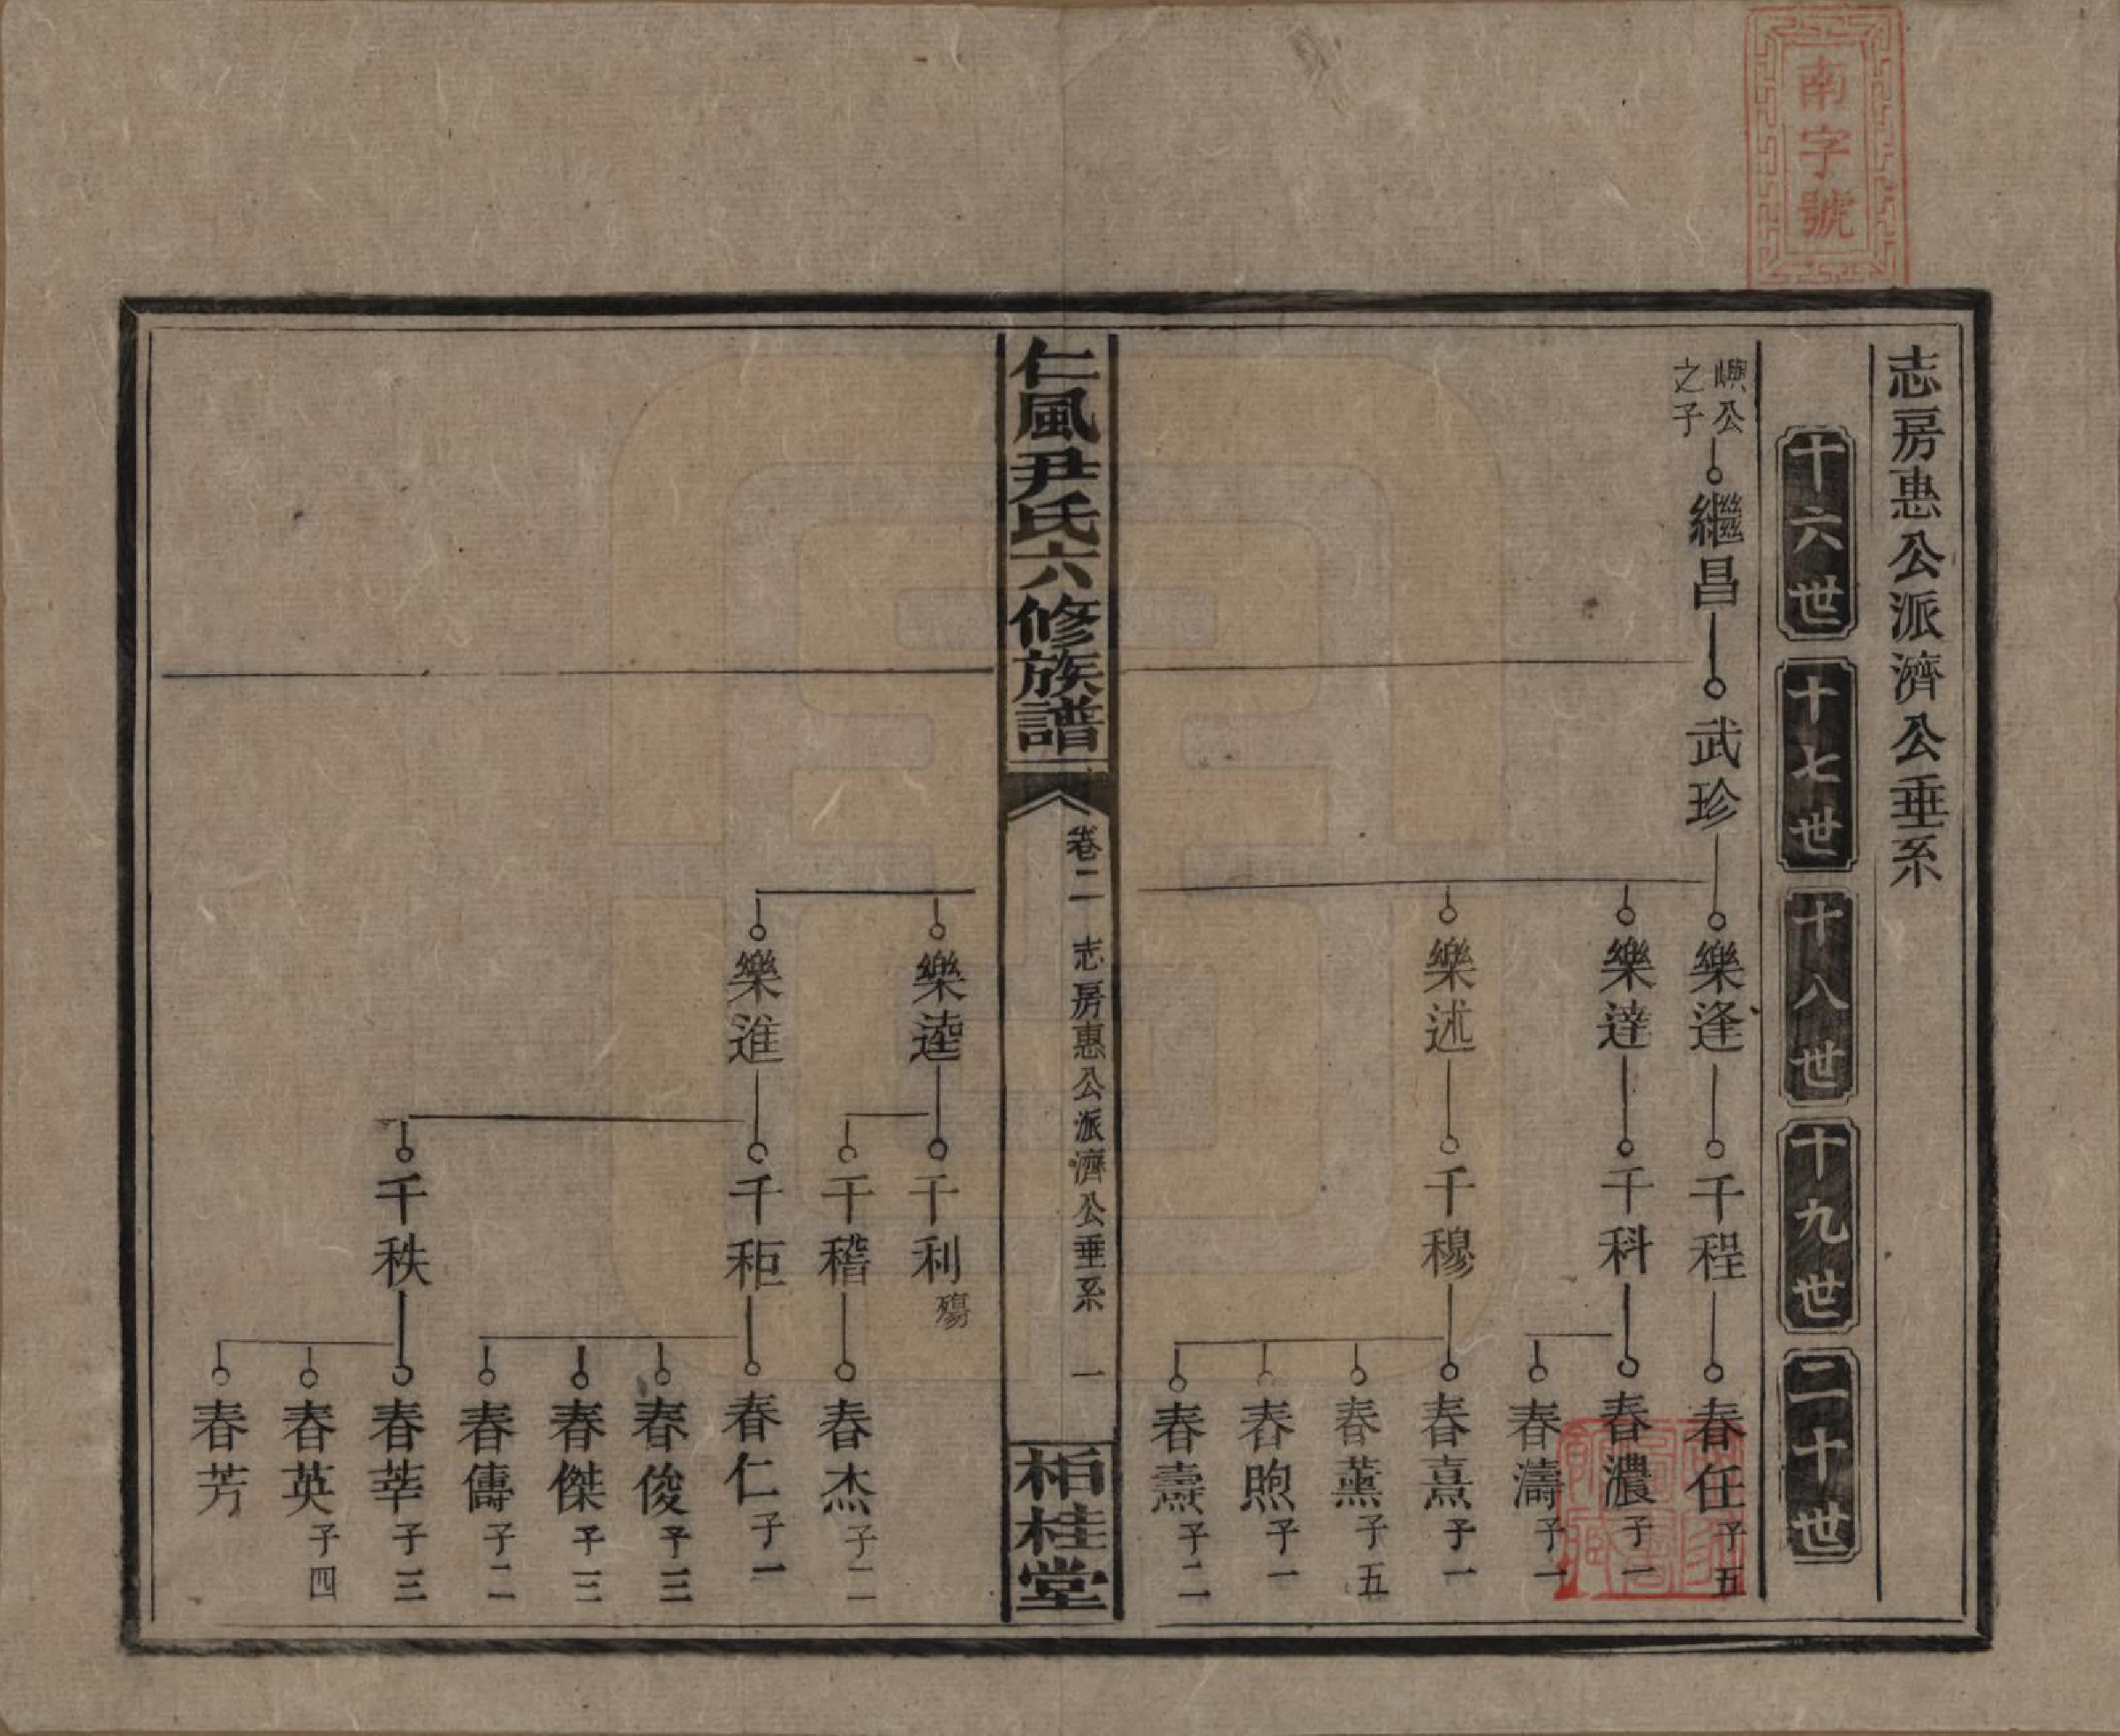 南字號
志房惠公派濟公垂系
十六世
十七世
十八世
十九世
二十世
嶼公之子
繼昌
武珍
樂逢
千程
春任 子五
樂達
千科
春濃 子一
春濤 子一
樂述
千穆
春熹 子一
春薰 子五
春煦 子一
春燾 子二
仁風尹氏六修族譜
卷二 志房惠公派濟公垂系 一
栢桂堂
樂逵
千利 殤
千稽
春杰 子二
樂進
千秬
春仁 子一
春俊 子三
春傑 子三
春儔 子二
千秩
春莘 子三
春英 子四
春芳